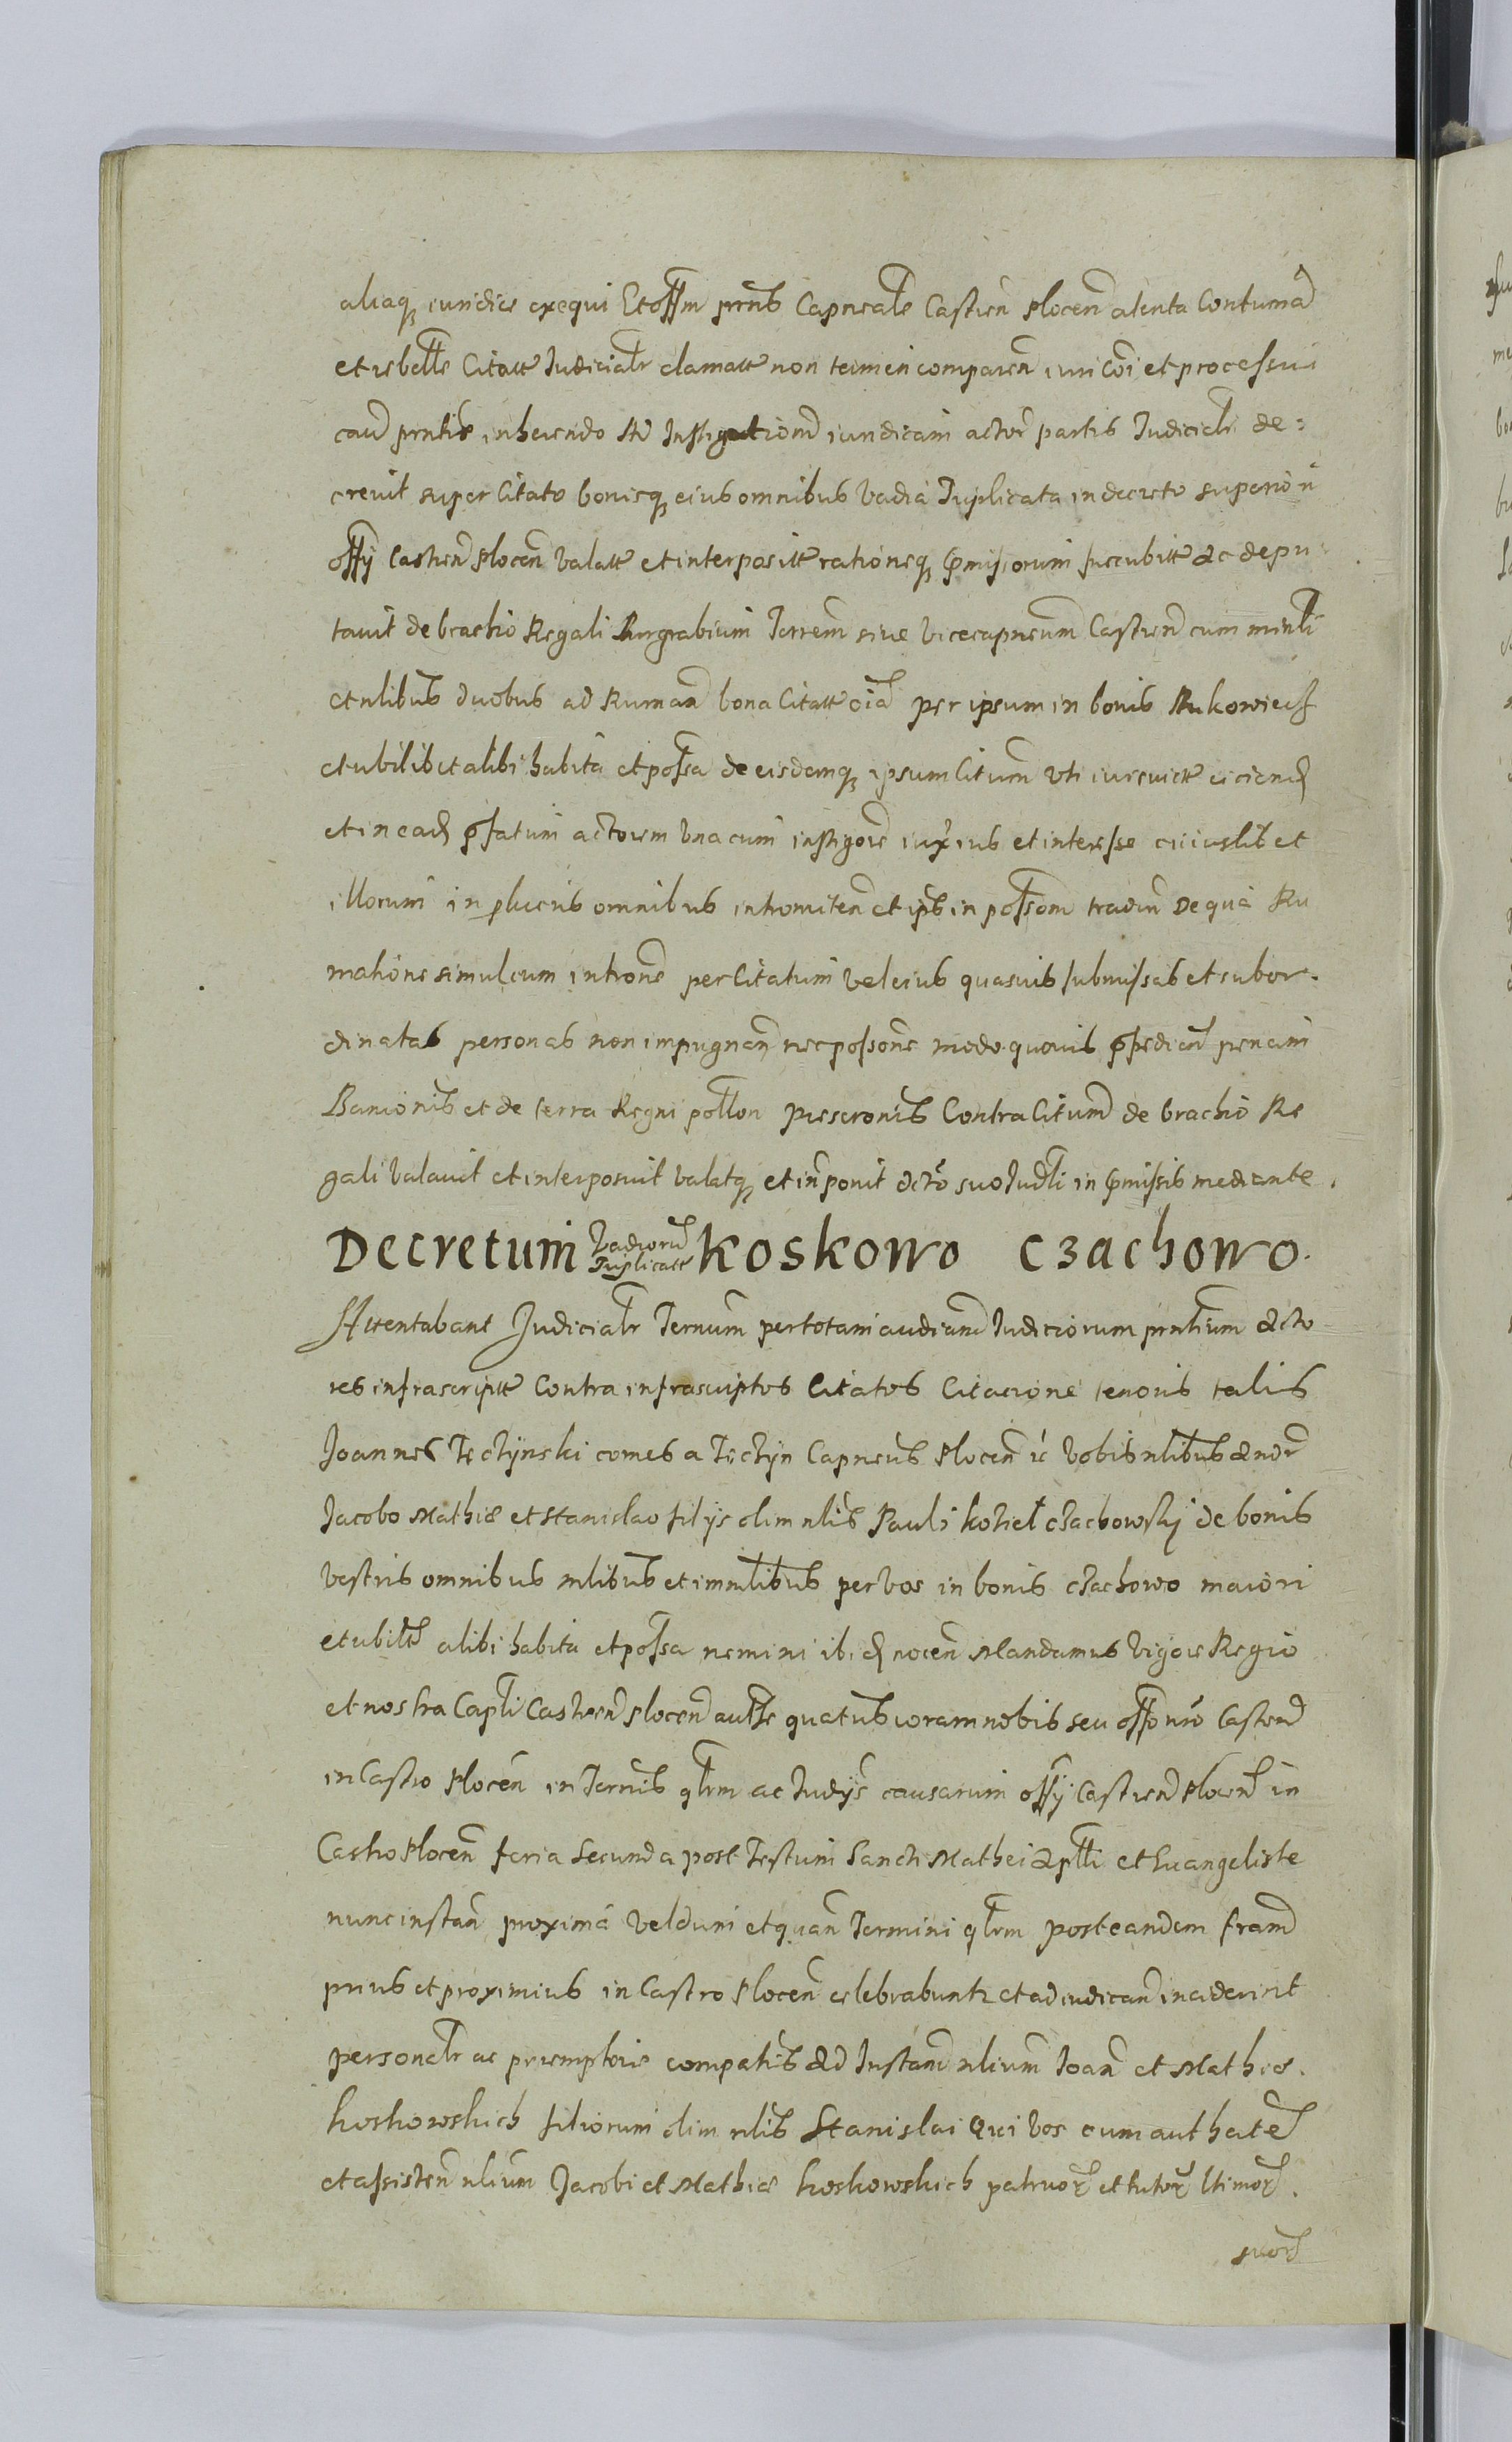 aliaq iuridice exequi Et offm prns Capneale Castren Plocen atenta Contuma
et rebelle Citatt Judicialr clamatt non temen comparen iuri coi et processui
caus prntis inherendo Ad Instigationem iuridicam actor partis Judicialr de:
crevit super Citato bonisq eius omnibus Vadia Triplicata in decreto superiori
offy Castren Plocen Valatt et interpositt rationeq pmissorum succubitt ac depu
tavit de brachio Regali Burgrabium Terrem sive Vicecapneum Castren cum minli
et nlibus duobus ad Ruman bona Citatt oia per ipsum in bonis Rukowiec
et ubilibet alibi habita et possa de eisdemq ipsum Citum vti iurevictt eiciend
et in ead pfatum actorem Vna cum instigore iux ius et interesse cuiuslibet
illorum in plucris omnibus intromiten et ips in possom tradin De qua Ru
matione simulcum introne per Citatum vel eius quasvis submissas et subor-
dinatas personas non impugnan nec possone modo quovis pfedien penam
Banionis et de terra Regni pollon Prescronis Contra Citum de brachio Re
gali Valavit et interposuit Valatq et inponit dcto suo Judli in pmissis mediante.
Decretum Vadiorum Triplicatt Koskowo Czachowo.
Attentabant Judicialr Ternum per totam audiam Judiciorum prntium Acto
res infrascriptt Contra infrascriptos Citatos Citacione tenoris talis
Joannes Teczynski comes a Teczyn Capneus Plocen ic Vobis nlibus
Jacobo Mathiæ et Stanislao filys olim nlis Pauli Koziel Czachowsky de bonis
Vestris omnibus mlibus et immlibus per Vos in bonis Czachowo maiori
et ubilt alibi habita et possa nemini ibid nocen Mandamus Vigore Regio
et nostra Capli Castren Plocen autte quatus coram nobis seu offo nro Castren
in Castro Plocen in Ternis qlrm ac Judys causarum offy Castren Plocen in
Castro Plocen feria Secunda post Festum Sancti Mathei Aplli et Euangeliste
nunc instan proxima Vel dum et quan Termini qlrm post eandem fram
prius et proximius in Castro Plocen celebrabuntr et ad iudican inciderint
personalr ac premptorie compatis Ad Instand nlium Joan et Mathiæ.
Koskowskich filiorum olim nlis Stanislai Qui Vos cum authate
et assisten nlium Jacobi et Mathiæ Koskowskich patruor et tutor ltimor.
suor